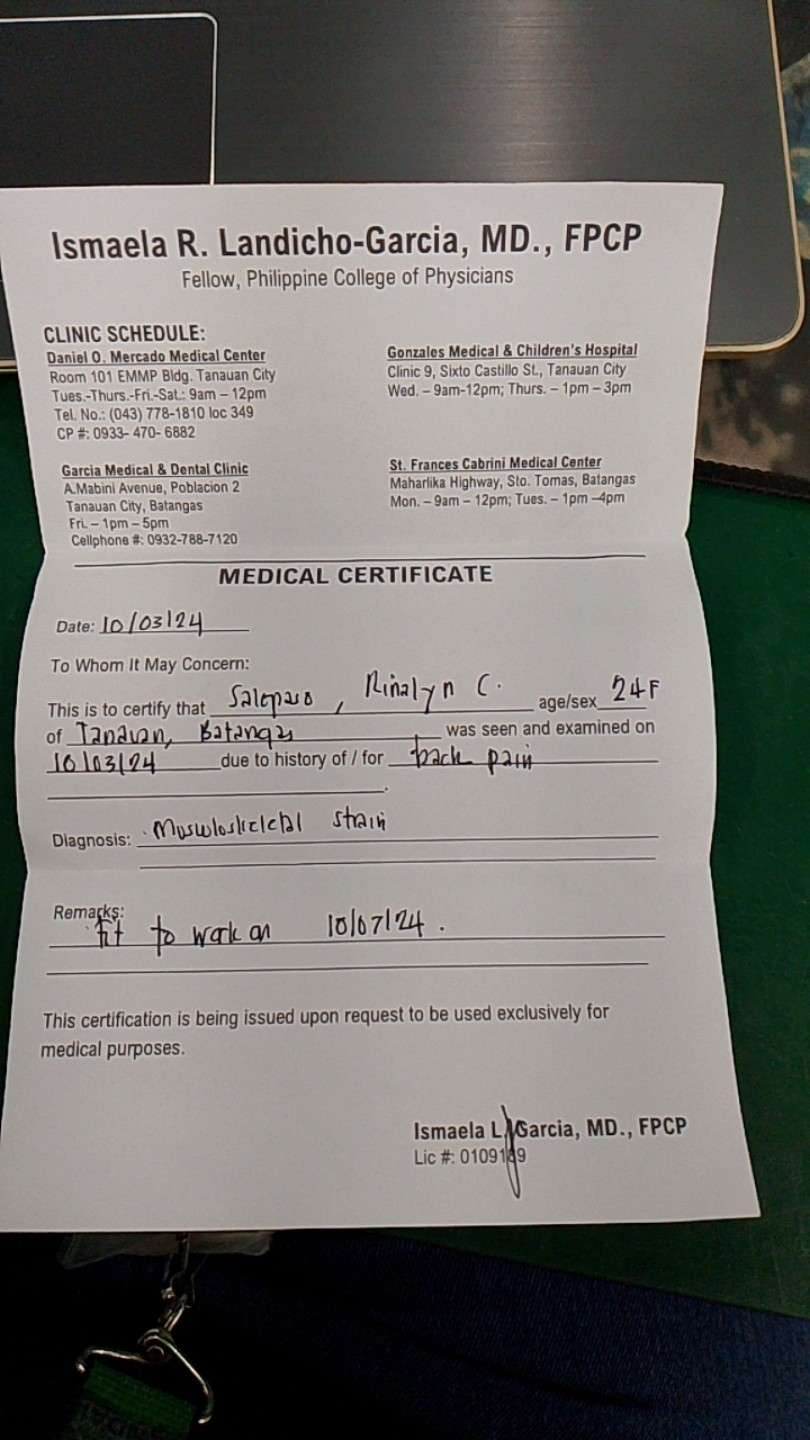 Ismaela R. Landicho-Garcia, MD., FPCP
Fellow, Philippine College of Physicians
CLINIC SCHEDULE:
Daniel O. Mercado Medical Center
Room 101 EMMP Bldg. Tanauan City
Tues.-Thurs.-Fri.-Sat.: 9am – 12pm
Tel. No.: (043) 778-1810 loc 349
CP #: 0933- 470- 6882
Gonzales Medical & Children's Hospital
Clinic 9, Sixto Castillo St., Tanauan City
Wed. – 9am-12pm; Thurs. – 1pm – 3pm
Garcia Medical & Dental Clinic
A.Mabini Avenue, Poblacion 2
Tanauan City, Batangas
Fri. – 1pm – 5pm
Cellphone #: 0932-788-7120
St. Frances Cabrini Medical Center
Maharlika Highway, Sto. Tomas, Batangas
Mon. – 9am – 12pm; Tues. – 1pm –4pm
MEDICAL CERTIFICATE
Date: 10/03/24
To Whom It May Concern:
This is to certify that , Rinalyn C. age/sex 24F
of Tanauan, Batangas was seen and examined on
10/03/24 due to history of / for back pain
Diagnosis: Musculoskeletal strain
Remarks:
fit to work on 10/07/24.
This certification is being issued upon request to be used exclusively for
medical purposes.
Ismaela L. Garcia, MD., FPCP
Lic #: